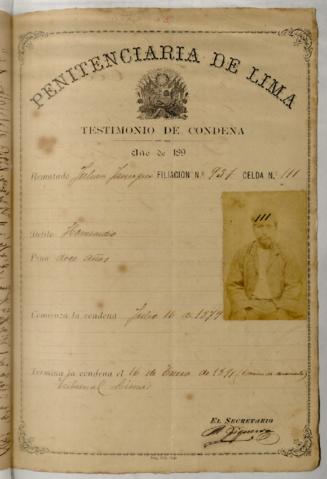 PENITENCIARIA DE LIMA
TESTIMONIO DE CONDENA
Año de 189
Rematado Julian FILIACION N.° 957 CELDA N.° 111
111
Delito Homicidio
Pena doce años
Comienza la condena Julio 16 de 1879
Termina la condena el 16 de Enero de 1891
Tribunal
EL SECRETARIO